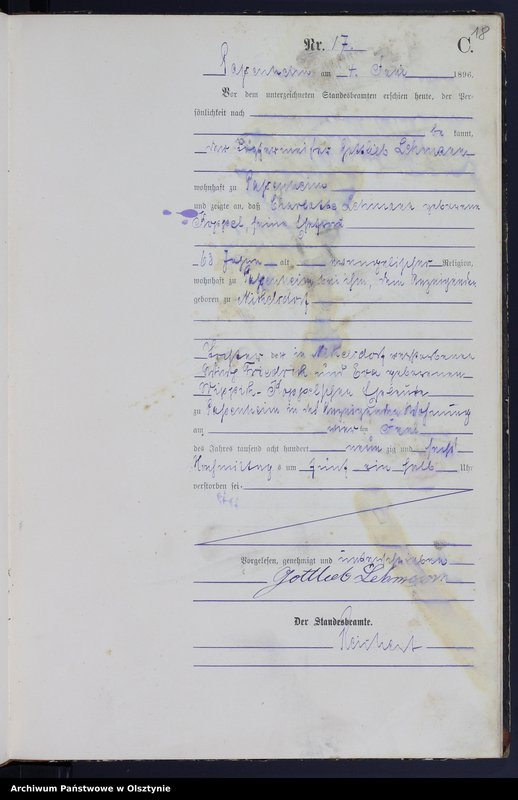 18
Nr. 17.
C.
Passenheim am 4. Juni 1896.
Vor dem unterzeichneten Standesbeamten erschien heute, der Per-
sönlichkeit nach
be kannt,
der Töpfermeister Gottlieb Lehmann
wohnhaft zu Passenheim
und zeigte an, daß Charlotte Lehmann geborene
Koppel, seine Ehefrau
63 Jahre alt, evangelischer Religion,
wohnhaft zu Passenheim bei ihm, dem Anzeigenden
geboren zu
Tochter der in verstorbenen
Friedrich und Eva geborenen
Eheleute
zu Passenheim in des Anzeigenden Wohnung
am vier ten Juni
des Jahres tausend acht hundert neun zig und sechs
Nachmittag s um fünf ein halb Uhr
verstorben sei.
Vorgelesen, genehmigt und unterschrieben
Gottlieb Lehmann
Der Standesbeamte.
Reichert
Archiwum Państwowe w Olsztynie